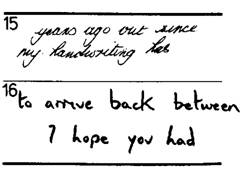 15
years ago out since
my handwriting has
16
to arrive back between
I hope you had